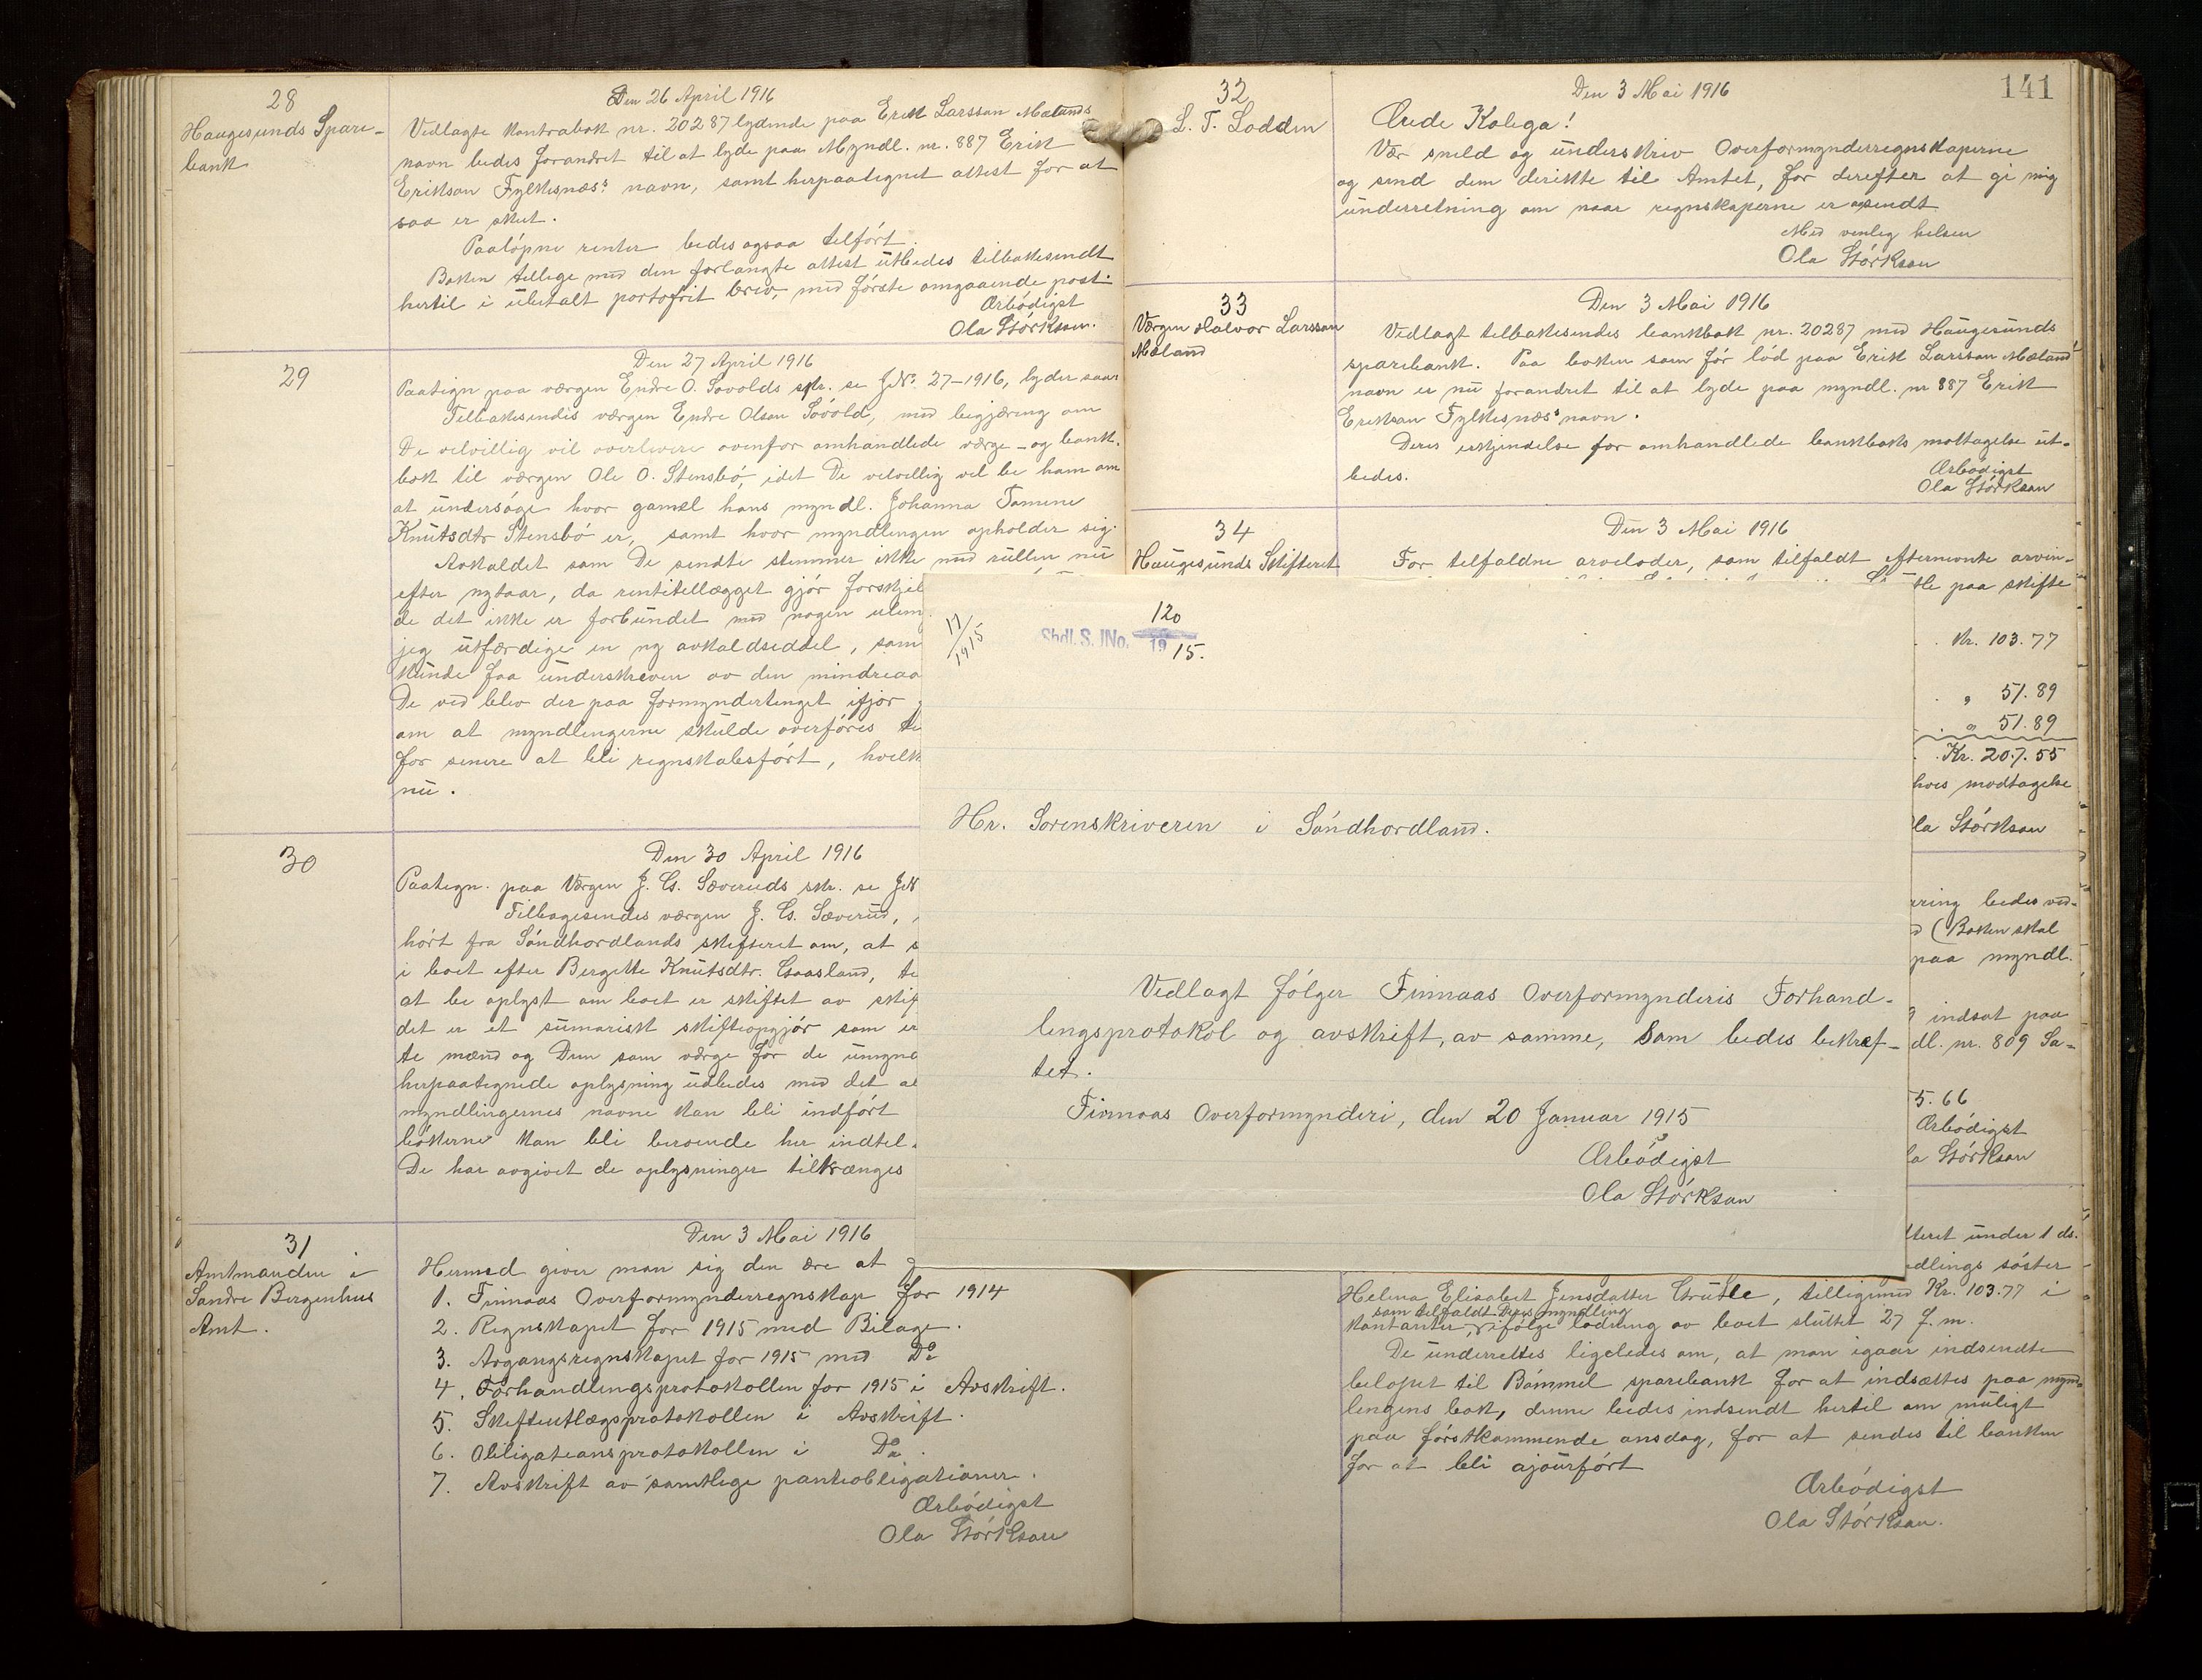 28
Haugesunds Spare-
bank
Den 26 April 1916
Vedlagte kontrabok nr. 20287 lydende paa Erik Larsson Mælands
navn bedes forandret til at lyde paa Myndl. nr. 887 Erik
Erikson Fylkesnæs's navn, samt herpaategnet attest for at
saa er skeet.
Paaløpne renter bedes ogsaa tilført.
Boken tillige med den forlangte attest utbedes tilbakesendt
hertil i ubetalt portofrit brev, med første omgaaende post.
Ærbødigst
Ola Størkson.
29
Den 27 April 1916
Paategn paa værgen Endre O. Sovolds skr. se JNr. 27-1916, lyder saa:
Tilbakesendes værgen Endre Olson Sovold, med begjæring om
De velvillig vil overlevere ovenfor omhandlede værge- og bank-
bok til værgen Ole O. Stensbø, idet De velvillig vil be ham om
at undersøge hvor gamel hans myndl. Johanna Tomine
Knutsdtr Stensbø er, samt hvor myndlingen opholder sig.
Avkaldet som De sendte stemmer ikke med rullen nu
efter nytaar, da rentetillægget gjør forskjel
de det ikke er forbundet med nogen ulem
jeg utfærdige en ny avkaldseddel, som
kunde faa underskreven av den mindreaa
De ved blev der paa formyndertinget ifjor
om at myndlingerne skulde overføres te
for senere at bli regnskabsført, hvilk
nu.
30
Den 30 April 1916
Paategn. paa Værgen J. G. Sæveruds skr. se JN
Tilbagesendes værgen J. G. Sæverud,
hørt fra Søndhordlands skifteret om, at s
i boet efter Bergitte Knutsdtr. Gaasland, te
at be oplyst om boet er skiftet av skif
det er et sumarisk skifteopgjør som er
te mænd og Dem som værge for de umynd
herpaategnede oplysning udbedes med det al
myndlingernes navne kan bli indført
bøkerne kan bli beroende her indtil
De har avgivet de oplysninger tiltrænges
31
Amtmanden i
Søndre Bergenhus
Amt.
Den 3 Mai 1916
Hermed giver man sig den ære at
1. Finnaas Overformynderregnskap for 1914
2. Regnskapet for 1915 med Bilage.
3. Avgangsregnskapet for 1915 med Do
4. Forhandlingsprotokollen for 1915 i Avskrift.
5. Skifteutlægsprotokollen i Avskrift.
6. Obligationsprotokollen i Do.
7. Avskrift av samtlige panteobligationer.
Ærbødigst
Ola Størkson
141
32
L. T. Lodden
Den 3 Mai 1916
Ærede Kolega!
Vær snild og underskriv Overformynderregnskaperne
og send dem direkte til Amtet, for derefter at gi mig
underretning om naar regnskaperne er avsendt
Med venlig hilsen
Ola Størkson
33
Værgen Halvor Larsson
Mæland
Den 3 Mai 1916
Vedlagt tilbakesendes bankbok nr. 20287 med Haugesunds
sparebank. Paa boken som før lød paa Erik Larsson Mælands
navn er nu forandret til at lyde paa myndl. nr 887 Erik
Erikson Fylkesnæs's navn.
Deres erkjendelse for omhandlede bankboks mottagelse ut-
bedes.
Ærbødigst
Ola Størkson
34
Haugesunds Skifteret
Den 3 Mai 1916
For tilfaldne arvelodder, som tilfaldt efternevnte arvin-
tle paa skifte
Kr. 103.77
" 51.89
" 51.89
Kr. 207.55
hvis modtagelse
la Størkson
æring bedes ved-
d (Boken skal
paa myndl.
indsat paa
dl. nr. 809 Sa-
5.66
Ærbødigst
la Størkson
fteret under 1 ds.
ndlings søster
Helena Elisabet Jensdatter Grutle, tilligemed Kr. 103.77 i
som tilfaldt Deres myndling
kontanter, ifølge lodning av boet sluttet 27 f. m.
De underrettes ligeledes om, at man igaar indsendte
beløpet til Bømmel sparebank for at indsættes paa mynd-
lingens bok, denne bedes indsendt hertil om muligt
paa førstkommende onsdag, for at sendes til banken
for at bli ajourført
Ærbødigst
Ola Størkson.
11/1915
Shdl. S. JNo. 120/1915.
Hr. Sorenskriveren i Søndhordland.
Vedlagt følger Finnaas Overformynderis Forhand-
lingsprotokol og avskrift, av samme, som bedes bekræf-
tet.
Finnaas Overformynderi, den 20 Januar 1915
Ærbødigst
Ola Størkson